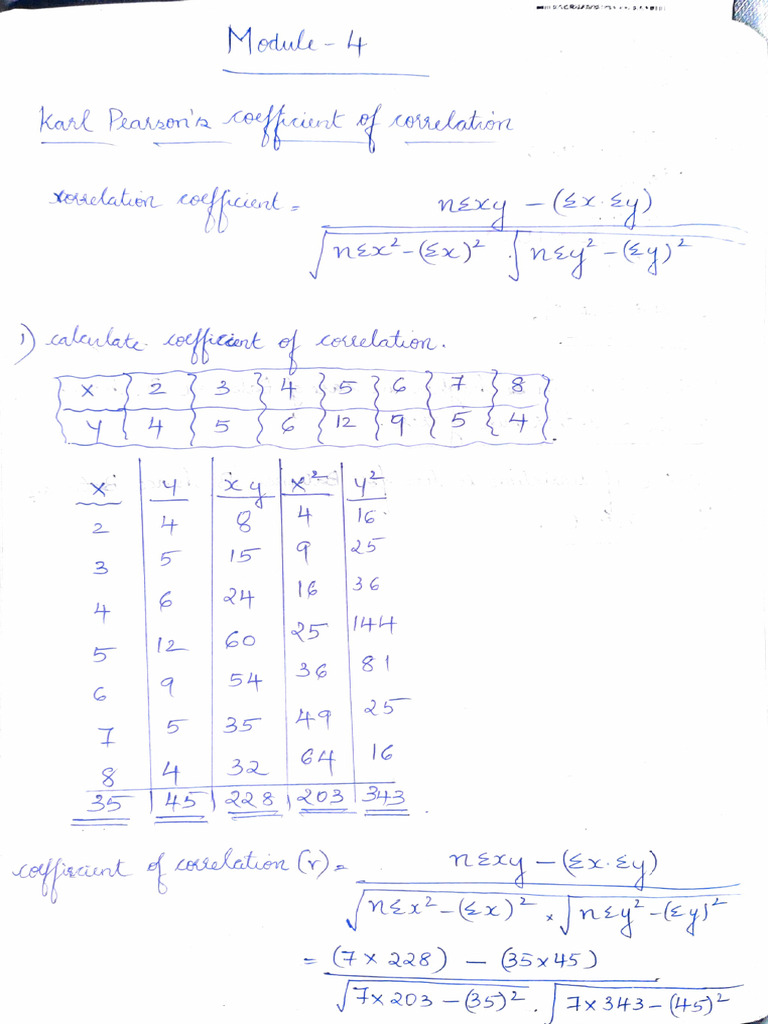 Module - 4
Karl Pearson's coefficient of correlation
correlation coefficient = nΣxy - (Σx·Σy)
√nΣx² - (Σx)² · √nΣy² - (Σy)²
1) calculate coefficient of correlation.
x 2 3 4 5 6 7 8
y 4 5 6 12 9 5 4
x y xy x² y²
2 4 8 4 16
3 5 15 9 25
4 6 24 16 36
5 12 60 25 144
6 9 54 36 81
7 5 35 49 25
8 4 32 64 16
35 45 228 203 343
coefficient of correlation (r) = nΣxy - (Σx·Σy)
√nΣx² - (Σx)² × √nΣy² - (Σy)²
= (7 × 228) - (35 × 45)
√7 × 203 - (35)² · √7 × 343 - (45)²